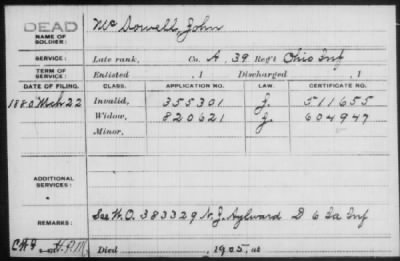 DEAD Mc Dowell, John
NAME OF SOLDIER:
SERVICE: Late rank, Co. A, 39 Reg't Ohio Inf
TERM OF SERVICE: Enlisted , 1 Discharged , 1
DATE OF FILING. CLASS. APPLICATION NO. LAW. CERTIFICATE NO.
1880 Mch 22 Invalid, 355301 J. 511655
Widow, 820621 J. 604947
Minor,
ADDITIONAL SERVICES:
REMARKS: See W.O. 383329 N. J. Aylward D 6 Ia Inf
Died , 1905, at